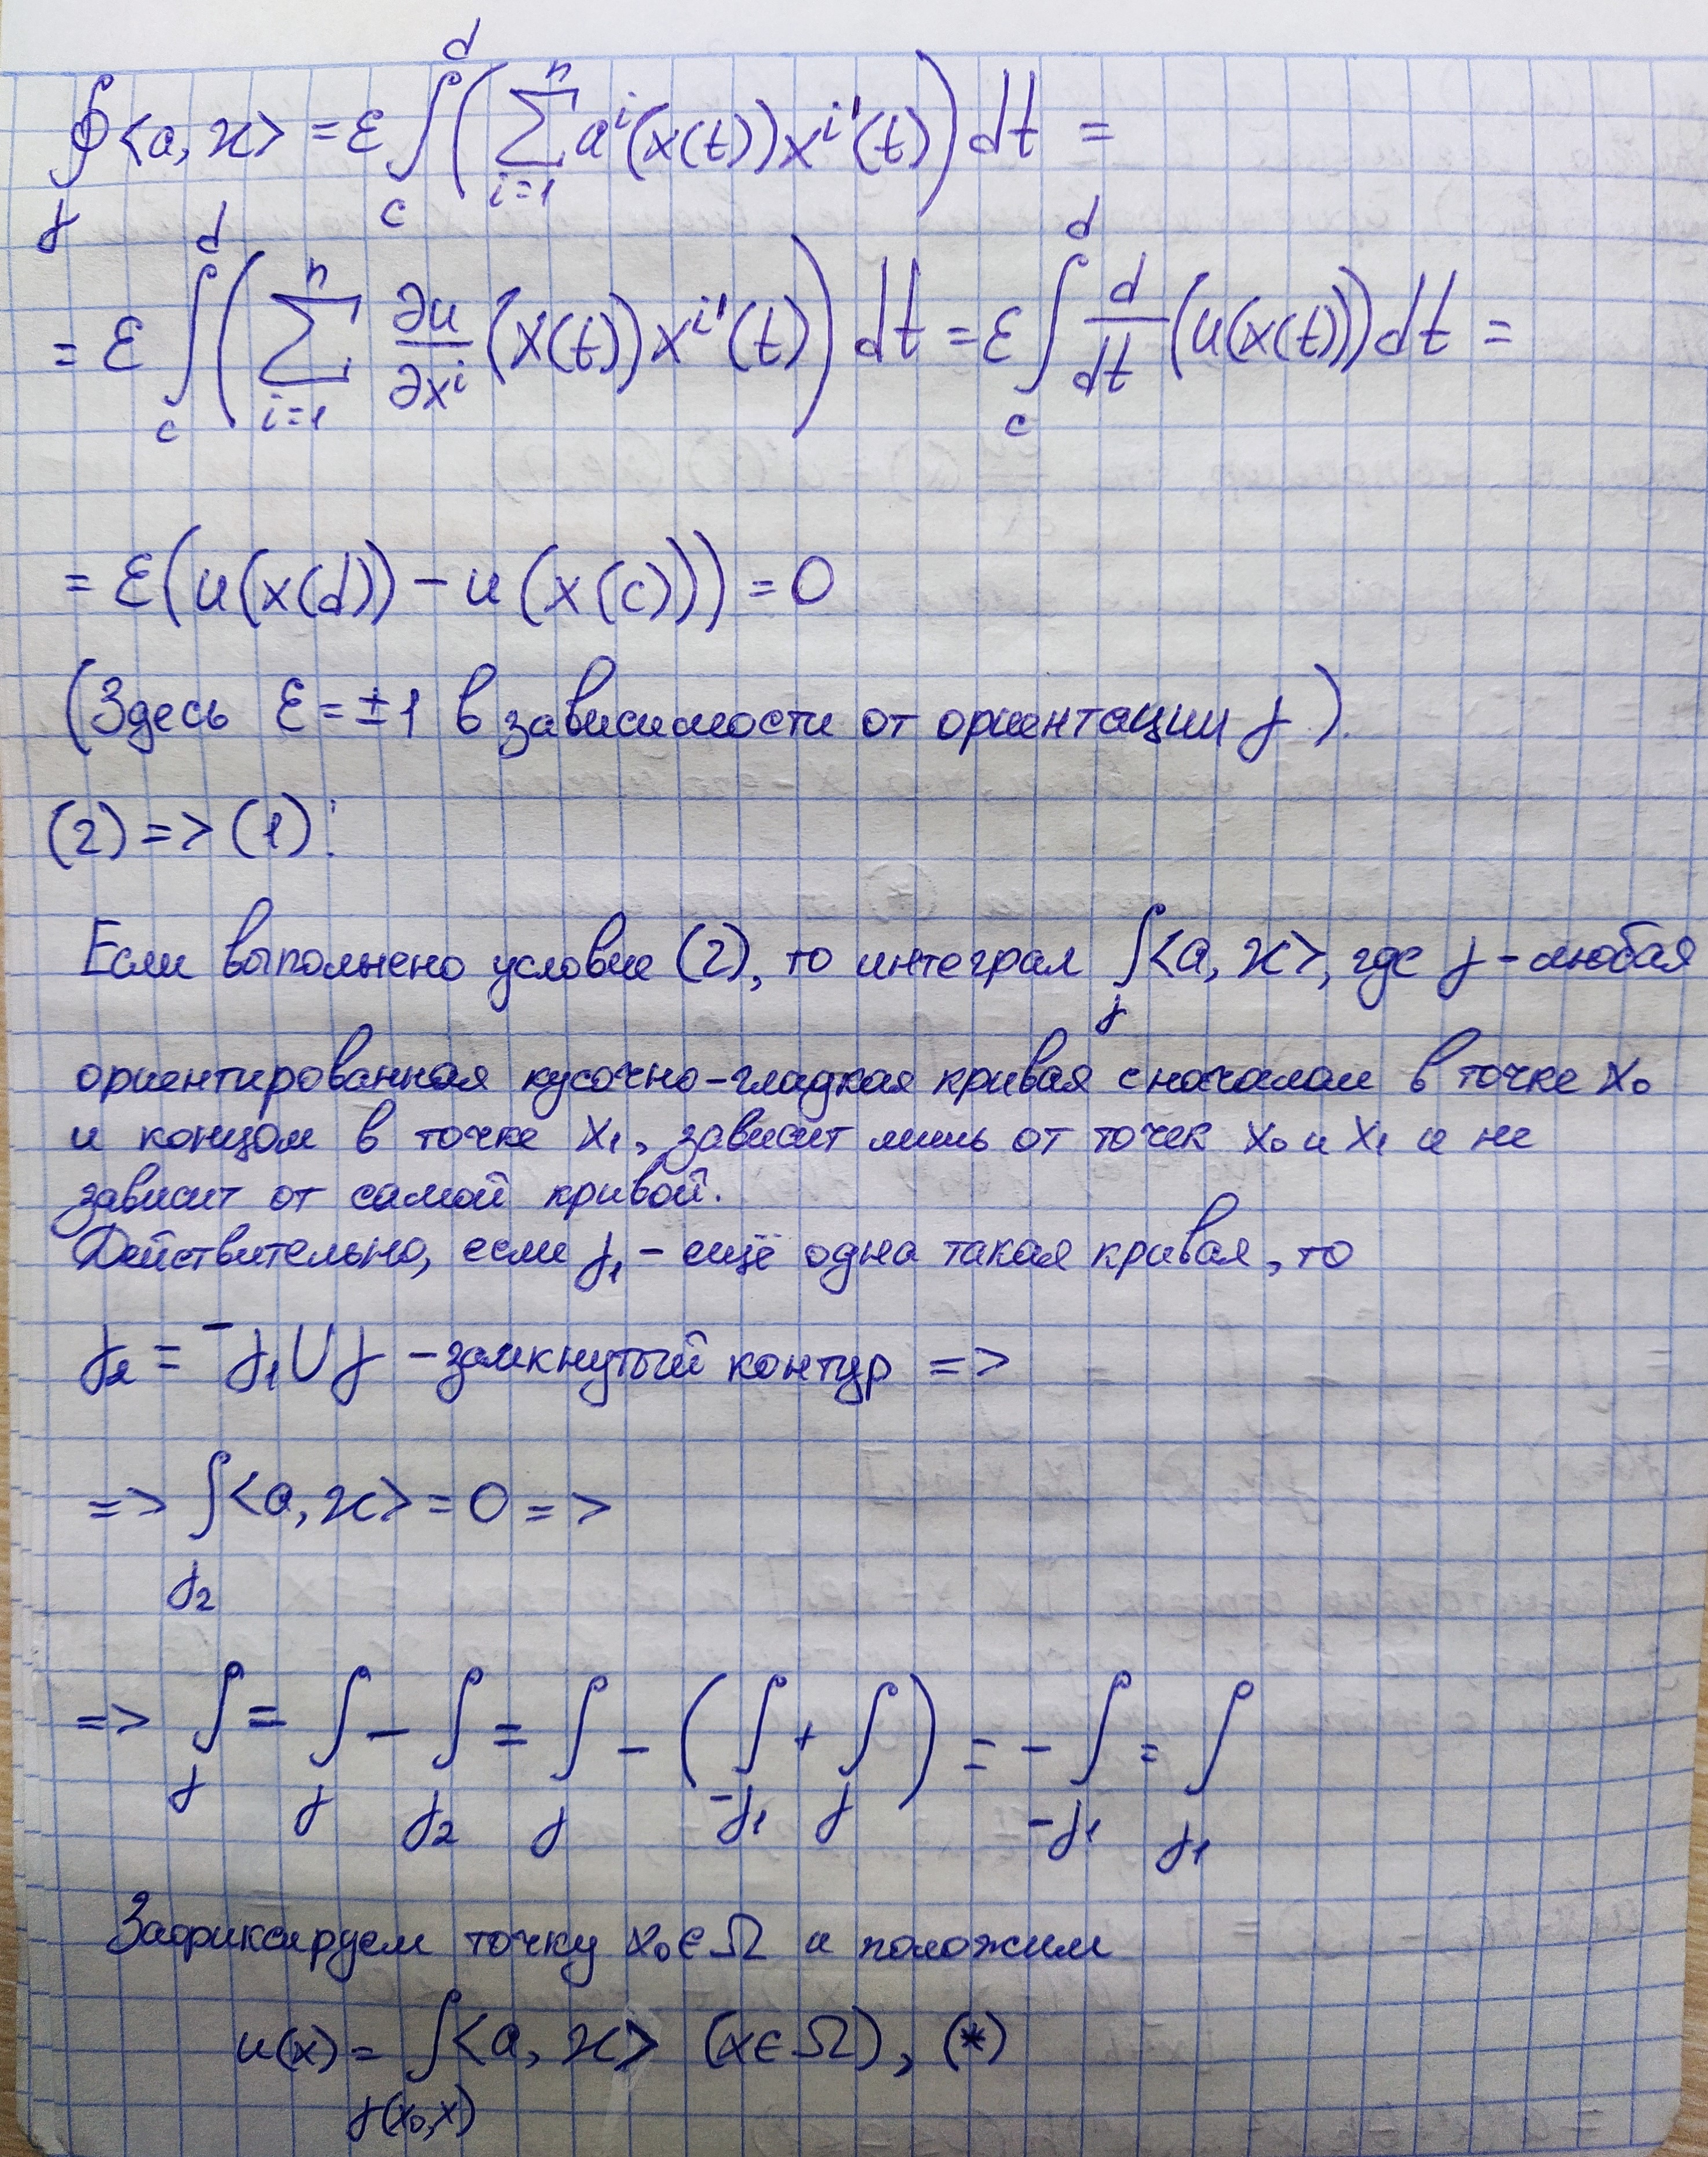 ∮_γ <a, ϰ> = ε ∫_c^d ( ∑_{i=1}^n a^i(x(t)) x^i'(t) ) dt =
= ε ∫_c^d ( ∑_{i=1}^n ∂u/∂x^i (x(t)) x^i'(t) ) dt = ε ∫_c^d d/dt (u(x(t))) dt =
= ε(u(x(d)) - u(x(c))) = 0
(Здесь ε = ±1 в зависимости от ориентации γ).
(2) => (1):
Если выполнено условие (2), то интеграл ∫_γ <a, ϰ>, где γ - любая
ориентированная кусочно-гладкая кривая с началом в точке x₀
и концом в точке x₁, зависит лишь от точек x₀ и x₁ и не
зависит от самой кривой.
Действительно, если γ₁ - ещё одна такая кривая, то
γ₂ = ⁻γ₁ ∪ γ - замкнутый контур =>
=> ∫_{γ₂} <a, ϰ> = 0 =>
=> ∫_γ = ∫_γ - ∫_{γ₂} = ∫_γ - ( ∫_{⁻γ₁} + ∫_γ ) = - ∫_{⁻γ₁} = ∫_{γ₁}
Зафиксируем точку x₀ ∈ Ω и положим
u(x) = ∫_{γ(x₀,x)} <a, ϰ> (x ∈ Ω), (*)